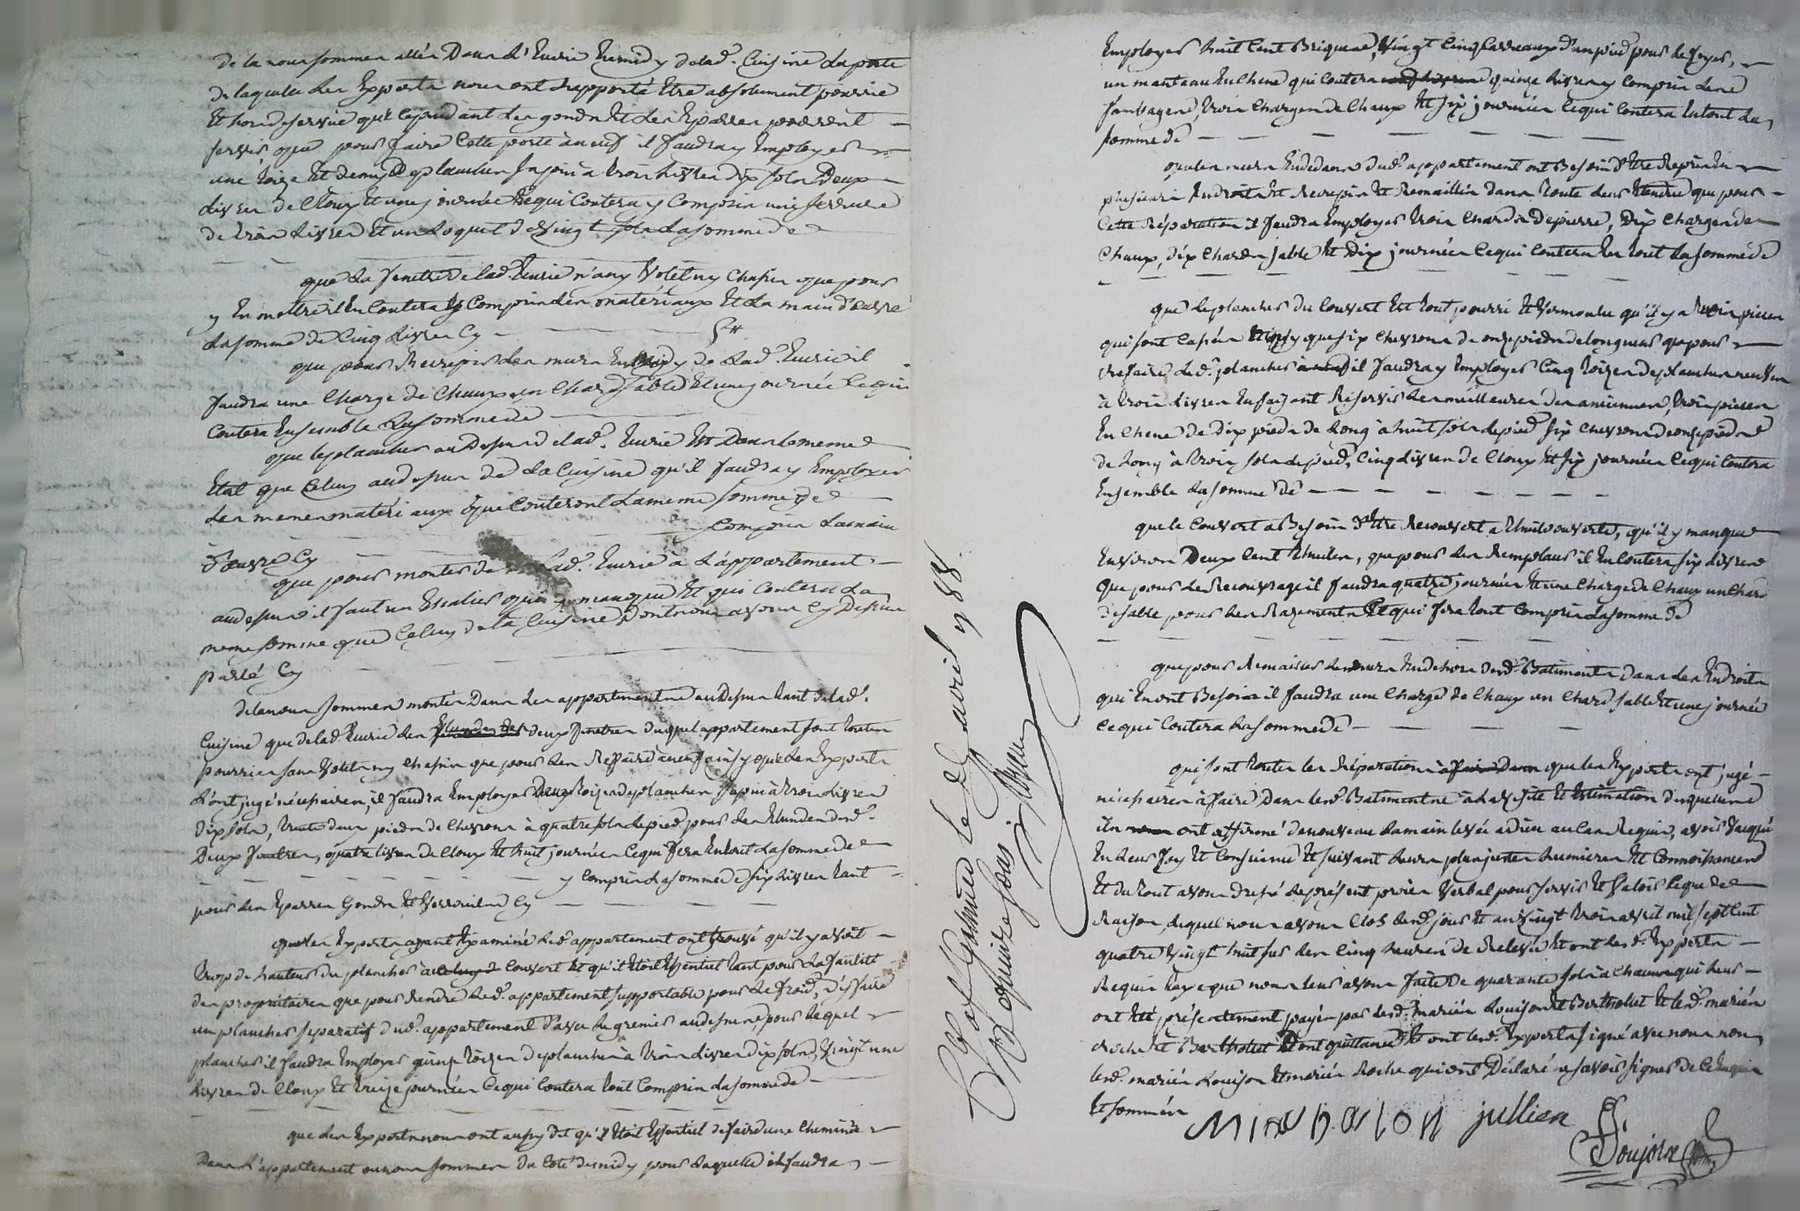 de la nous sommes allés Dans L'Eurie Eumidy delad. Cuisine La porte
de laquelle Les Experts nous ont rapporté Etre absolument pourrie
Et hors deservice que cependant Les gonds Et Les Eparres peuvent
servir que pour faire Cette porte à neuf il faudra y Employer
une toize Et demy De planches Sapin à trois Livres dix sols Deux
Livres de Cloux Et une journée Ce qui Contera y Compris une serrure
de trois Livres Et un Loquet de vingt sols La somme de
que La fenetre de lad. Eurie n'a ny Volet ny Chassis que pour
y En mettre il En Contera y Compris Les materiaux Et La main d'œuvre
La somme de Cinq Livres Cy 5#
que pour Recrepir Les murs de Lad. Eurie il
faudra une Charge de Chaux un Char de sable Et une journée Ce qui
Contera Ensemble La somme de
que le plancher au Dessus de lad. Eurie Est Dans Le meme
Etat que Celuy au dessus de La Cuisine qu'il faudra y Employer
Les memes matériaux que Conteront La meme somme de
y Compris La main
d'œuvre Cy
que pour monter de lad. Eurie à L'appartement
au dessus il faut un Escalier qui y manque Et qui Contera La
meme somme que Celuy de la Cuisine Dont nous avons Cy Dessus
parlé Cy
de la nous sommes montés Dans Les appartements au Dessus tant de lad.
Cuisine que de lad. Eurie Les deux fenetres duquel appartement sont toutes
pourries sans Volet ny Chassis que pour Les Refaire à neuf ainsy que Les Experts
L'ont jugé nécéssaire, il faudra Employer Deux toizes de planches sapin à trois Livres
Dix sols, trente deux pieds de Chevrons à quatre sols Le pied pour Les
Deux fenetres, quatre Livres de Cloux Et huit journées Ce qui fera En tout La somme de
y Compris La somme de six Livres tant
pour Les Eparres Gonds Et Verrouils Cy
que Les Experts ayant Examiné Led. appartement ont trouvé qu'il y avoit
trop de hauteur du plancher au Couvert Et qu'il Etoit Essentiel tant pour La
des propriétaires que pour Rendre Led. appartement supportable pour Le froid, d'y faire
un plancher séparatif dud. appartement D'avec Le grenier au dessus, pour Lequel
plancher il faudra Employer quinze toizes de planches à trois Livres dix sols, vingt une
Livres de Cloux Et treize journées Ce qui Contera tout Compris La somme de
que Les Experts nous ont aussy dit qu'il Etoit Essentiel de faire une Cheminée
Dans L'appartement ou nous sommes du Coté de midy pour Laquelle il faudra
Controllé Gratis Le 24 avril 1788.
Employer huit Cent Briques, Vingt Cinq Carreaux d'un pied pour Le foyer,
un manteau En Chene qui Contera quinze Livres y Compris Les
trois Charges de Chaux Et six journées Ce qui Contera En tout La
somme de
que Les murs En dedans dud. appartement ont Besoin d'Etre Repris En
plusieurs Endroits Et Recrepis Et Remaillés Dans toute Leur Etendue que pour
Cette Réparation il faudra Employer trois Chars de pierre, Dix Charges de
Chaux, dix Chars de sable Et Dix journées Ce qui Contera En tout La somme de
que Le plancher du Couvert Est tout pourri Et Vermoulu qu'il y a trois pièces
qui sont Cassées que six Chevrons de onze pieds de longueur que pour
refaire Led. plancher il faudra y Employer Cinq toizes de planches
à trois Livres En faisant Reservir Les meilleures des anciennes, trois pièces
En Chene de Dix pieds de Long à huit sols Le pied, six Chevrons de onze pieds
de Long à trois sols Le pied, Cinq Livres de Cloux Et six journées Ce qui Contera
Ensemble La somme de
que Le Couvert a Besoin d'Etre Recouvert à Thuile ouverte, qu'il y manque
Environ Deux Cent Thuiles, que pour Les Remplacer il En Contera six Livres
que pour Le Recouvrage il faudra quatre journées Et une Charge de Chaux un Char
de sable pour Les Razements Ce qui fera tout Compris La somme de
que pour Remailler Les murs En dehors dud. Batiments Dans Les Endroits
qui En ont Besoin il faudra une Charge de Chaux un Char de sable Et une journée
Ce qui Contera La somme de
qui sont toutes Les Réparations que Les Experts ont jugé
nécéssaires à faire Dans Led. Batiments à La Visite Et Estimation duquel
ils ont affirmé de nouveau La main Levée à dieu au Cas Requis, avoir Vaqué
En Leur foy Et Conscience Et suivant Leurs plus justes Lumieres Et Connoissances
Et du tout avons dressé Le présent procès Verbal pour servir Et Valoir Ce que de
Raison, Lequel nous avons Clos Led. jour Et an vingt trois avril mil sept Cent
quatre vingt huit sur Les Cinq heures de Relevée Et ont Les d. Experts
Requis taxe que nous Leur avons faite de quarante sols à Chacun qui Leur
ont Eté présentement payés par Led. mariés Louison Et Bartholut Et Led. mariés
Roche Et Bartholut Dont quittance Et ont Led. Experts signé avec nous non
Led. mariés Louison Et mariés Roche qui ont Déclaré ne savoir signer de Ce Enquis
Et sommés
jullien